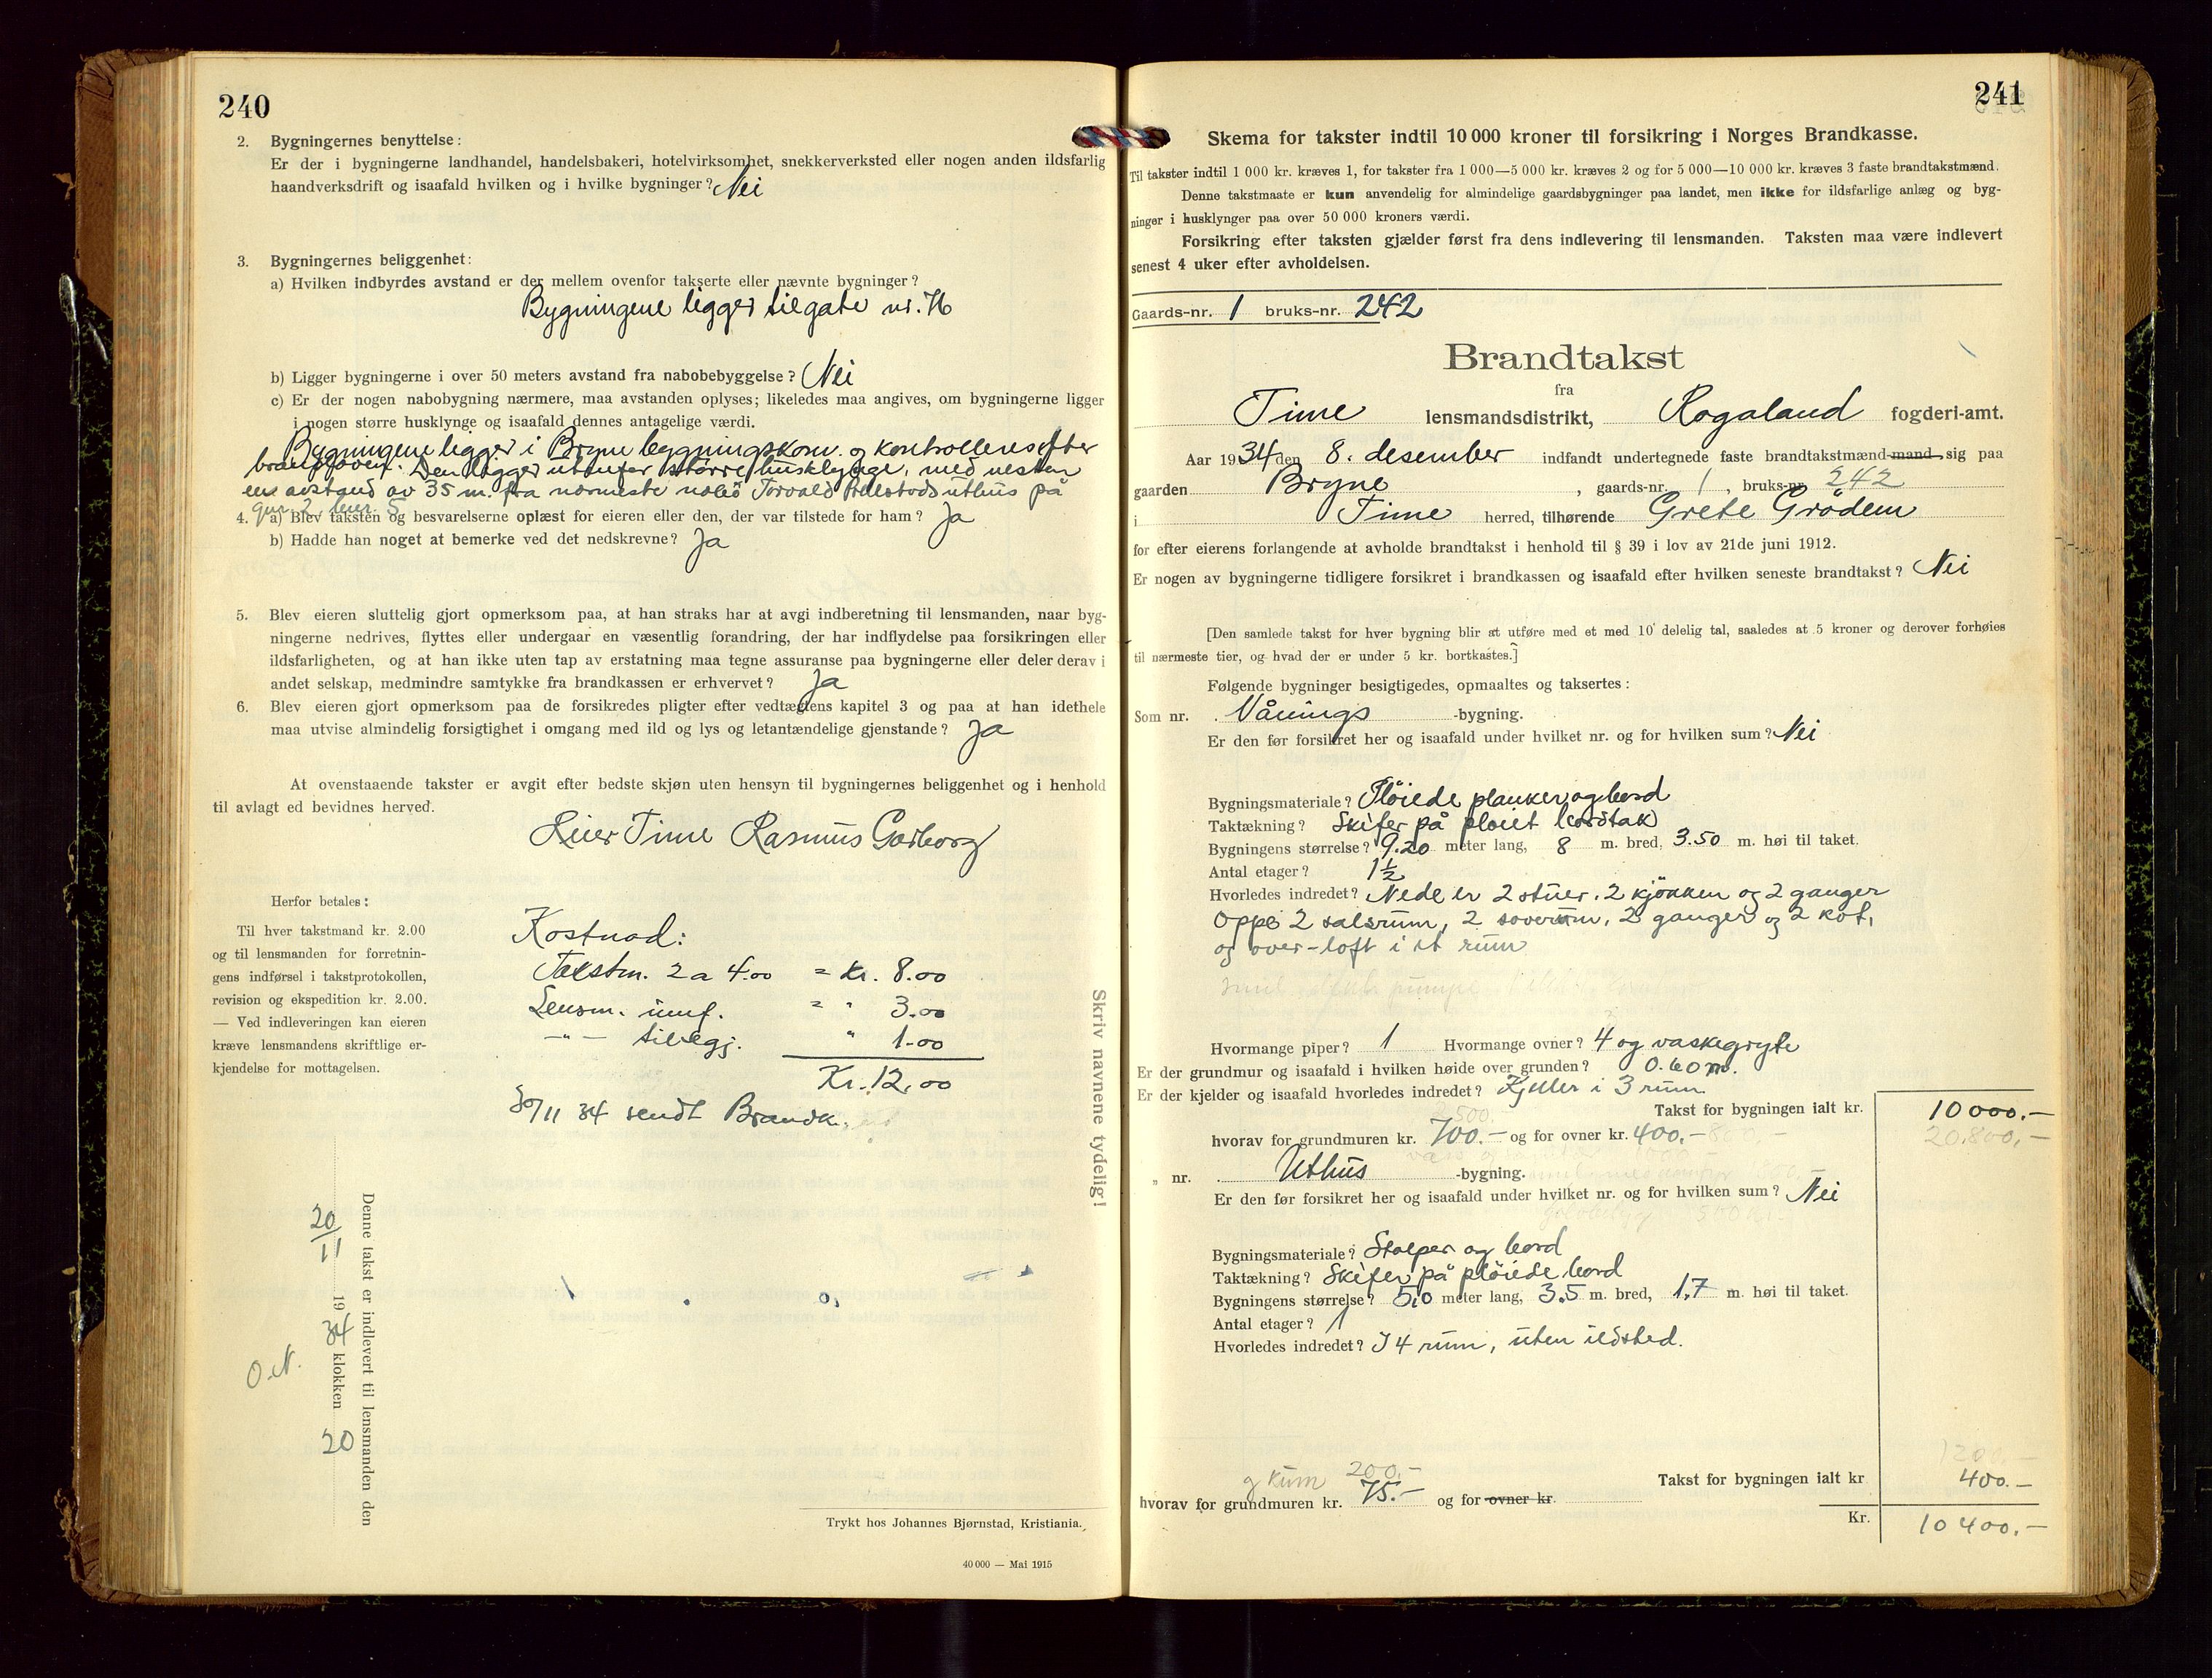 240
2. Bygningernes benyttelse:
Er der i bygningerne landhandel, handelsbakeri, hotelvirksomhet, snekkerverksted eller nogen anden ildsfarlig
haandverksdrift og isaafald hvilken og i hvilke bygninger? Nei
3. Bygningernes beliggenhet:
a) Hvilken indbyrdes avstand er der mellem ovenfor takserte eller nævnte bygninger?
Bygningene ligger til gate nr.
b) Ligger bygningerne i over 50 meters avstand fra nabobebyggelse? Nei
c) Er der nogen nabobygning nærmere, maa avstanden oplyses; likeledes maa angives, om bygningerne ligger
i nogen større husklynge og isaafald dennes antagelige værdi.
Bygningene ligger i Bryne bygningskom. og kontrolleres efter
branloven. Den ligger utenfor større husklynge, med nesten
en avstand av 35 m. fra nærmeste nabo Torvald uthus på
gnr. 2 bnr. 5
4. a) Blev taksten og besvarelserne oplæst for eieren eller den, der var tilstede for ham? Ja
b) Hadde han noget at bemerke ved det nedskrevne? Ja
5. Blev eieren sluttelig gjort opmerksom paa, at han straks har at avgi indberetning til lensmanden, naar byg-
ningerne nedrives, flyttes eller undergaar en væsentlig forandring, der har indflydelse paa forsikringen eller
ildsfarligheten, og at han ikke uten tap av erstatning maa tegne assuranse paa bygningerne eller deler derav i
andet selskap, medmindre samtykke fra brandkassen er erhvervet? Ja
6. Blev eieren gjort opmerksom paa de forsikredes pligter efter vedtægtens kapitel 3 og paa at han idethele
maa utvise almindelig forsigtighet i omgang med ild og lys og letantændelige gjenstande? Ja
At ovenstaaende takster er avgit efter bedste skjøn uten hensyn til bygningernes beliggenhet og i henhold
til avlagt ed bevidnes herved.
Reier Time Rasmus Garborg
Herfor betales:
Til hver takstmand kr. 2.00
og til lensmanden for forretnin-
gens indførsel i takstprotokollen,
revision og ekspedition kr. 2.00.
— Ved indleveringen kan eieren
kræve lensmandens skriftlige er-
kjendelse for mottagelsen.
Kostnad:
Takstm. 2 a 4.00 = Kr. 8.00
Lensm. innf. = " 3.00
-"- tillegg. " 1.00
Kr. 12.00
30/11 34 sendt Brandk.
Skriv navnene tydelig!
Denne takst er indlevert til lensmanden den
20/11 1934 klokken 20
O.N.
Trykt hos Johannes Bjørnstad, Kristiania.
40 000 — Mai 1915
241
Skema for takster indtil 10 000 kroner til forsikring i Norges Brandkasse.
Til takster indtil 1 000 kr. kræves 1, for takster fra 1 000—5 000 kr. kræves 2 og for 5 000—10 000 kr. kræves 3 faste brandtakstmænd.
Denne takstmaate er kun anvendelig for almindelige gaardsbygninger paa landet, men ikke for ildsfarlige anlæg og byg-
ninger i husklynger paa over 50 000 kroners værdi.
Forsikring efter taksten gjælder først fra dens indlevering til lensmanden. Taksten maa være indlevert
senest 4 uker efter avholdelsen.
Gaards-nr. 1 bruks-nr. 242
Brandtakst
fra
Time lensmandsdistrikt, Rogaland fogderi-amt.
Aar 1934 den 8. desember indfandt undertegnede faste brandtakstmænd mand sig paa
gaarden Bryne, gaards-nr. 1, bruks-nr. 242
i Time herred, tilhørende Grete Grödem
for efter eierens forlangende at avholde brandtakst i henhold til § 39 i lov av 21de juni 1912.
Er nogen av bygningerne tidligere forsikret i brandkassen og isaafald efter hvilken seneste brandtakst? Nei
[Den samlede takst for hver bygning blir at utføre med et med 10 delelig tal, saaledes at 5 kroner og derover forhøies
til nærmeste tier, og hvad der er under 5 kr. bortkastes.]
Følgende bygninger besigtigedes, opmaaltes og taksertes:
Som nr. Vånings -bygning.
Er den før forsikret her og isaafald under hvilket nr. og for hvilken sum? Nei
Bygningsmateriale? Plöiede planker og bord
Taktækning? Skifer på plöiet bordtak
Bygningens størrelse? 9.20 meter lang, 8 m. bred, 3.50 m. høi til taket.
Antal etager? 1½
Hvorledes indredet? Nede er 2 stuer, 2 kjökken og 2 ganger
Oppe 2 salsrum, 2 soverum, 2 ganger og 2 kot,
og over-loft i et rum
Hvormange piper? 1 Hvormange ovner? 4 og vaskegryte
Er der grundmur og isaafald i hvilken høide over grunden? 0.60 m.
Er der kjelder og isaafald hvorledes indredet? Kjeller i 3 rum
Takst for bygningen ialt kr. 10 000.—
20.800.—
hvorav for grundmuren kr. 700.— og for ovner kr. 400.—
„ nr. Uthus -bygning.
Er den før forsikret her og isaafald under hvilket nr. og for hvilken sum? Nei
Bygningsmateriale? Stolper og bord
Taktækning? Skifer på plöiede bord
Bygningens størrelse? 5,0 meter lang, 3.5 m. bred, 1,7 m. høi til taket.
Antal etager? 1
Hvorledes indredet? I 4 rum, uten ildsted.
1200.—
g kum 200.—
Takst for bygningen ialt kr 400.—
hvorav for grundmuren kr. 75.— og for ovner kr.
Kr. 10 400.—